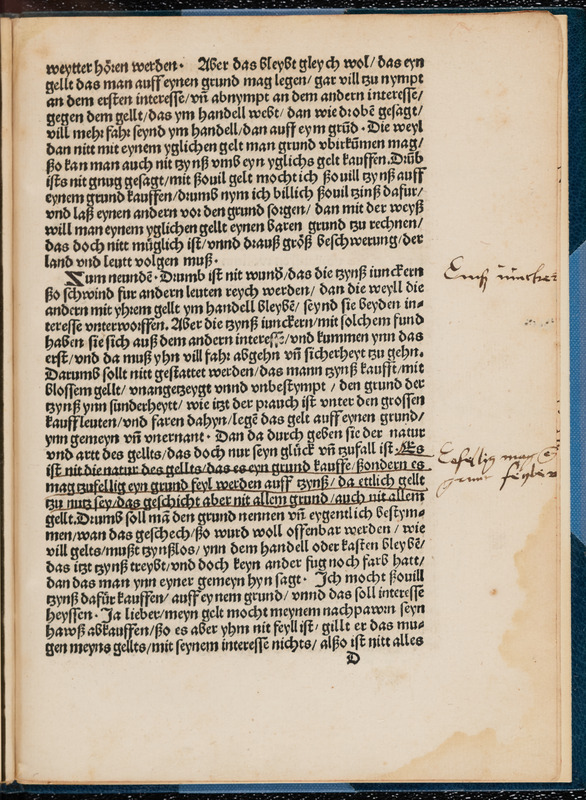 weytter hören werden. Aber das bleybt gleych wol/ das eyn
gellt das man auff eynen grund mag legen/ gar vill tzu nympt
an dem ersten interesse/ vñ abnympt an dem andern interesse/
gegen dem gellt/ das ym handell webt/ dan wie drobē gesagt/
vill mehr fahr seynd ym handell/ dan auff eym grūd. Die weyl
dan nitt mit eynem yglichen gelt man grund vbirkūmen mag/
ßo kan man auch nit tzynß vmb eyn yglichs gelt kauffen. Drūb
ists nit gnug gesagt/ mit ßouil gelt mocht ich ßouill tzynß auff
eynem grund kauffen/ drumb nym ich billich ßouil tzinß dafur/
vnd laß eynen andern vor den grund sorgen/ dan mit der weyß
will man eynem yglichen gellt eynen baren grund tzu rechnen/
das doch nitt müglich ist/ vnnd drauß größ beschwerung/ der
land vnd leutt volgen muß.
Zum neundē. Drumb ist nit wund/ das die tzynß iunckern
ßo schwind fur andern leuten reych werden/ dan die weyll die
andern mit yhrem gellt ym handell bleybē/ seynd sie beyden in-
teresse vnterworffen. Aber die tzynß iunckern/ mit solchem fund
haben sie sich auß dem andern interesse/ vnd kummen ynn das
erst/ vnd da muß yhn vill fahr abgehn vñ sicherheyt tzu gehn.
Darumb sollt nitt gestattet werden/ das mann tzynß kaufft/ mit
blossem gellt/ vnangetzeygt vnnd vnbestympt/ den grund der
tzynß ynn sunderheytt/ wie itzt der prauch ist vnter den grossen
kauffleuten/ vnd faren dahyn/ legē das gelt auff eynen grund/
ynn gemeyn vñ vnernant. Dan da durch geben sie der natur
vnd artt des gellts/ das doch nur seyn glück vñ tzufall ist. Es
ist nit die natur des gellts/ das es eyn grund kauffe/ ßondern es
mag tzufellig eyn grund feyl werden auff tzynß/ da ettlich gellt
tzu nutz sey/ das geschicht aber nit allem grund/ auch nit allem
gellt. Drumb soll mā den grund nennen vñ eygentlich bestym-
men/ wan das geschech/ ßo wurd woll offenbar werden/ wie
vill gelts/ mußt tzynßlos/ ynn dem handell oder kasten bleybē/
das itzt tzynß treybt/ vnd doch keyn ander fug noch farb hatt/
dan das man ynn eyner gemeyn hyn sagt. Ich mocht ßouill
tzynß dafür kauffen/ auff eynem grund/ vnnd das soll interesse
heyssen. Ja lieber/ meyn gelt mocht meynem nachpawrn seyn
hawß abkauffen/ ßo es aber yhm nit feyll ist/ gillt er das mu-
gen meyns gellts/ mit seynem interesse nichts/ alßo ist nitt alles
D